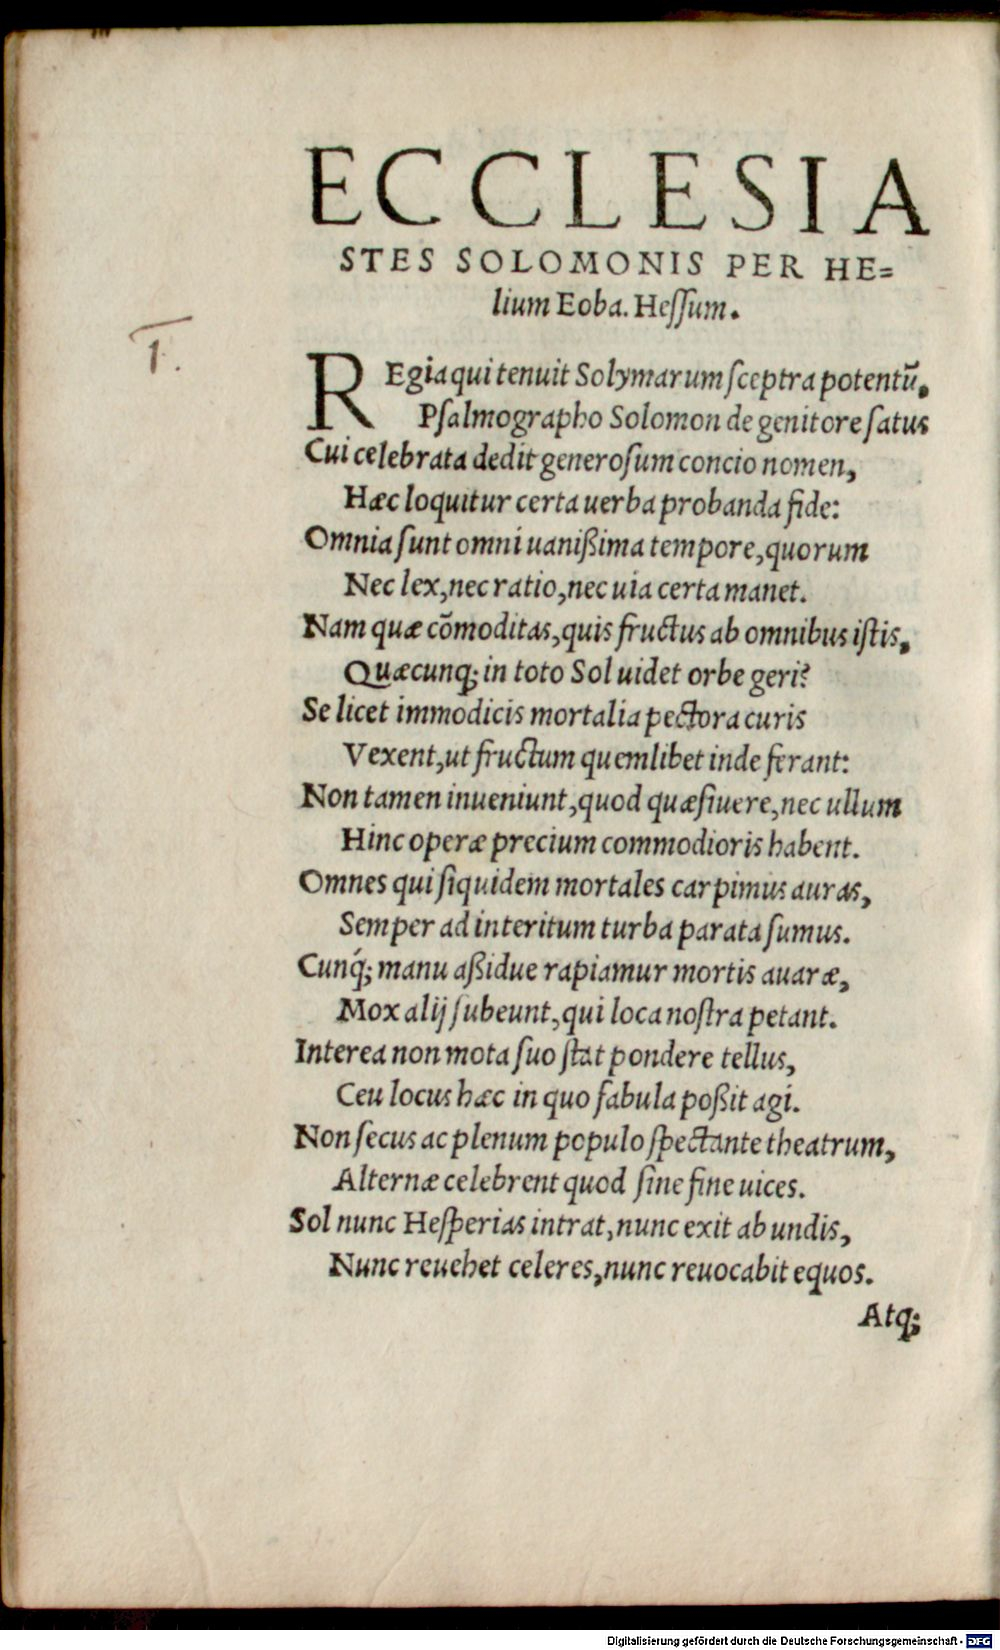 ECCLESIA
STES SOLOMONIS PER HE=
lium Eoba. Heſſum.
1.
REgia qui tenuit Solymarum ſceptra potentũ,
Pſalmographo Solomon de genitore ſatus
Cui celebrata dedit generoſum concio nomen,
Hæc loquitur certa uerba probanda fide:
Omnia ſunt omni uanißima tempore, quorum
Nec lex, nec ratio, nec uia certa manet.
Nam quæ cõmoditas, quis fructus ab omnibus iſtis,
Quæcunq; in toto Sol uidet orbe geri?
Se licet immodicis mortalia pectora curis
Vexent, ut fructum quemlibet inde ferant:
Non tamen inueniunt, quod quæſiuere, nec ullum
Hinc operæ precium commodioris habent.
Omnes qui ſiquidem mortales carpimus auras,
Semper ad interitum turba parata ſumus.
Cunq́; manu aßidue rapiamur mortis auaræ,
Mox alij ſubeunt, qui loca noſtra petant.
Interea non mota ſuo ſtat pondere tellus,
Ceu locus hæc in quo fabula poßit agi.
Non ſecus ac plenum populo ſpectante theatrum,
Alternæ celebrent quod ſine fine uices.
Sol nunc Heſperias intrat, nunc exit ab undis,
Nunc reuehet celeres, nunc reuocabit equos.
Atq;
Digitalisierung gefördert durch die Deutsche Forschungsgemeinschaft - DFG